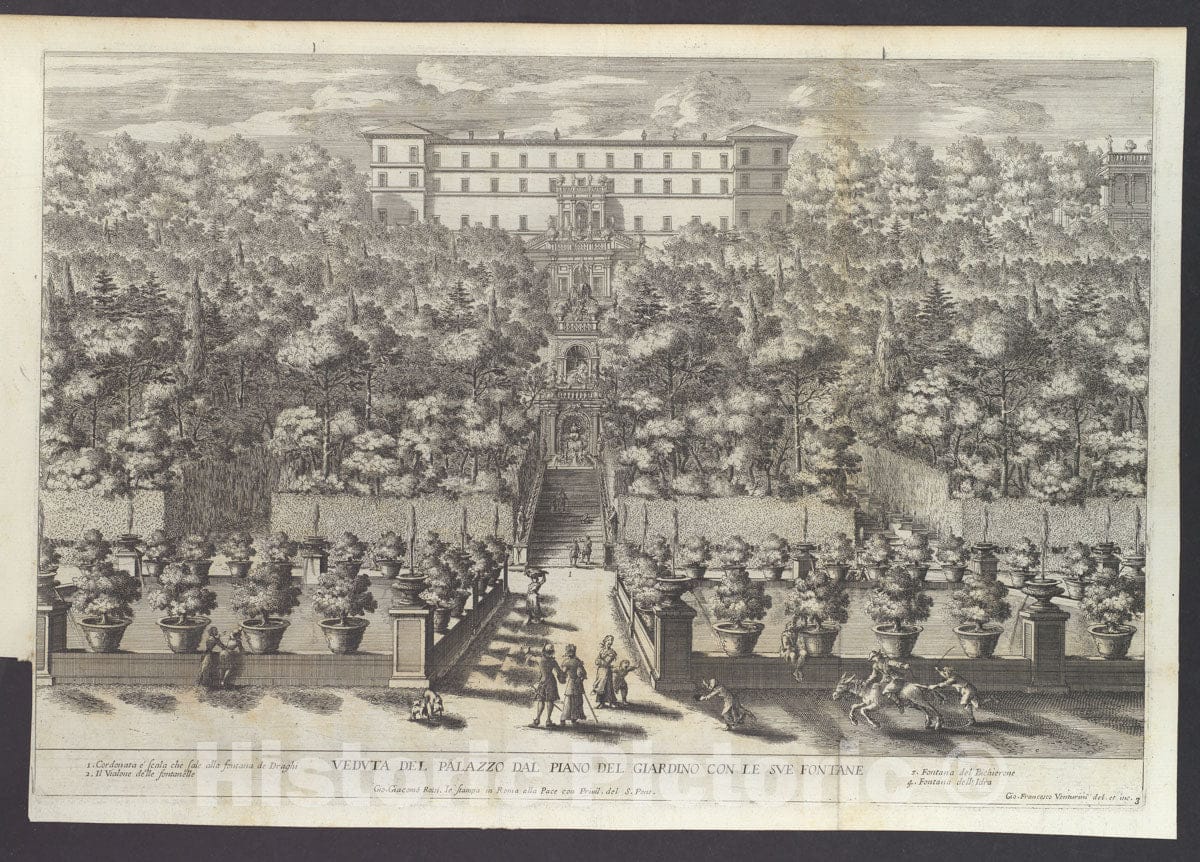 1. Cordonata è scala che sale alla fontana de Draghi
2. Il Vialone delle fontanelle
VEDVTA DEL PALAZZO DAL PIANO DEL GIARDINO CON LE SVE FONTANE
Gio. Giacomo Rossi le stampa in Roma alla Pace con Privil. del S. Pont.
3. Fontana del Bichierone
4. Fontana dell'Idra
Gio. Francesco Venturini del. et inc. 3
Historic Pictoric ©
1